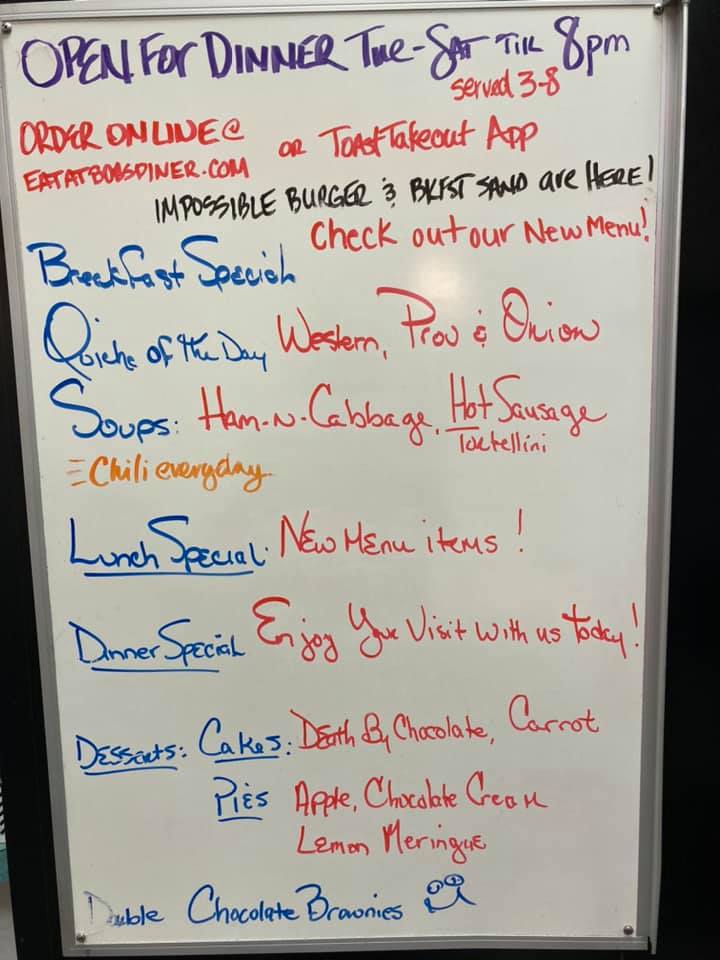 OPEN FOR DINNER TUE-SAT TIL 8pm
served 3-8
ORDER ONLINE@
EATATBOBSDINER.COM
OR TOAST TAKEOUT APP
IMPOSSIBLE BURGER & BKFST SAND are HERE!
Check out our New Menu!
Breakfast Special
Quiche of the Day Western, Prov & Onion
Soups: Ham-N-Cabbage, Hot Sausage
Tortellini
Chili everyday
Lunch Special: New Menu items!
Dinner Special Enjoy Your Visit with us Today!
Desserts: Cakes: Death By Chocolate, Carrot
Pies Apple, Chocolate Cream
Lemon Meringue
Double Chocolate Brownies